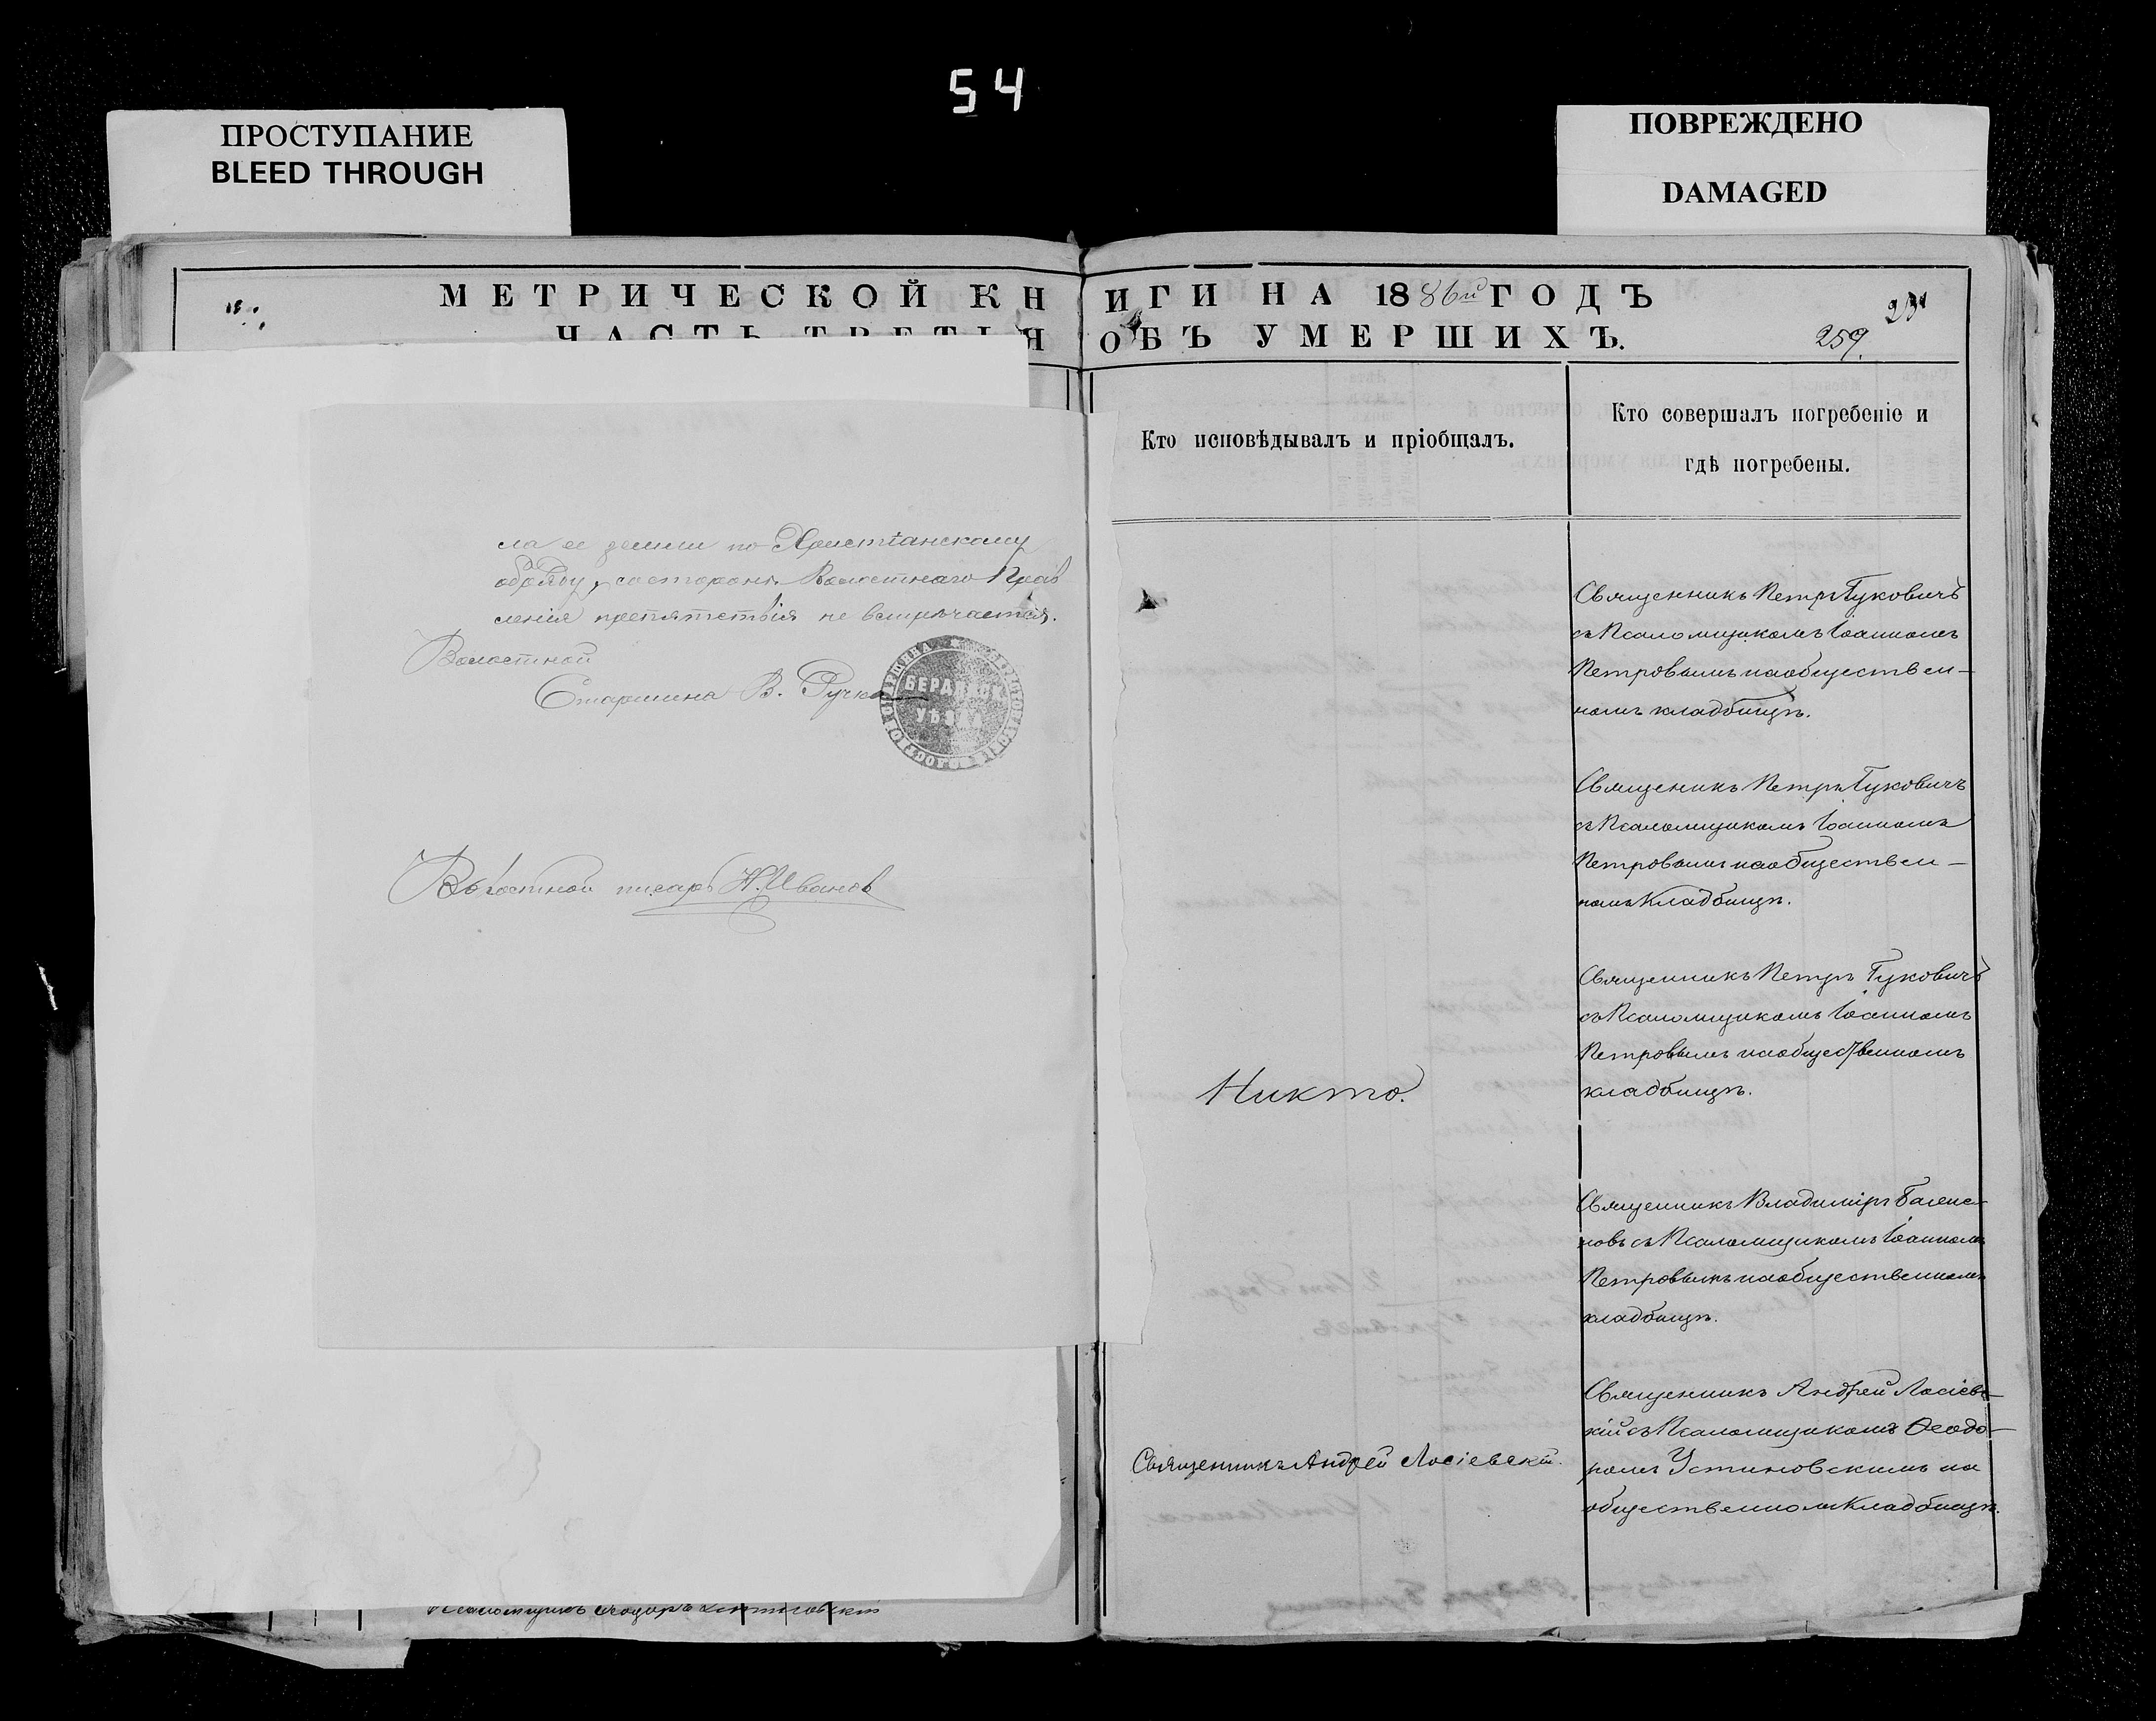 54
ПРОСТУПАНИЕ
BLEED THROUGH
ПОВРЕЖДЕНО
DAMAGED
МЕТРИЧЕСКОЙ КНИГИ НА 1886й ГОДЪ
ЧАСТЬ ТРЕТЬЯ ОБЪ УМЕРШИХЪ.
231
259.
ла ее земли по Христіанскому
обряду, со стороны Волостнаго Прав
ленія препятствія не встречается.
Волостной
Старшина В. Ручка
БЕРДЯНСК
УѢЗДА
Волостной писарь Н. Иванов
Кто исповѣдывалъ и пріобщалъ.
Кто совершалъ погребеніе и
гдѣ погребены.
Священникъ Петръ Гуковичъ
съ Псаломщикомъ Іоанномъ
Петровымъ на обществен-
номъ кладбищѣ.
Священикъ Петръ Гуковичъ
съ Псаломщикомъ Іоанномъ
Петровымъ на обществен-
номъ кладбищѣ.
Священникъ Петръ Гуковичъ
съ Псаломщикомъ Іоанномъ
Петровымъ на общественномъ
кладбищѣ.
Никто.
Священникъ Владиміръ Баляс-
новъ съ Псаломщикомъ Іоанномъ
Петровымъ на общественномъ
кладбищѣ.
Священникъ Андрей Лосіевскій.
Священникъ Андрей Лосіевс-
кій съ Псаломщикомъ Ѳеодо-
ромъ Устиновскимъ на
общественномъ кладбищѣ.
Псаломщикъ Ѳеодоръ Устиновскій